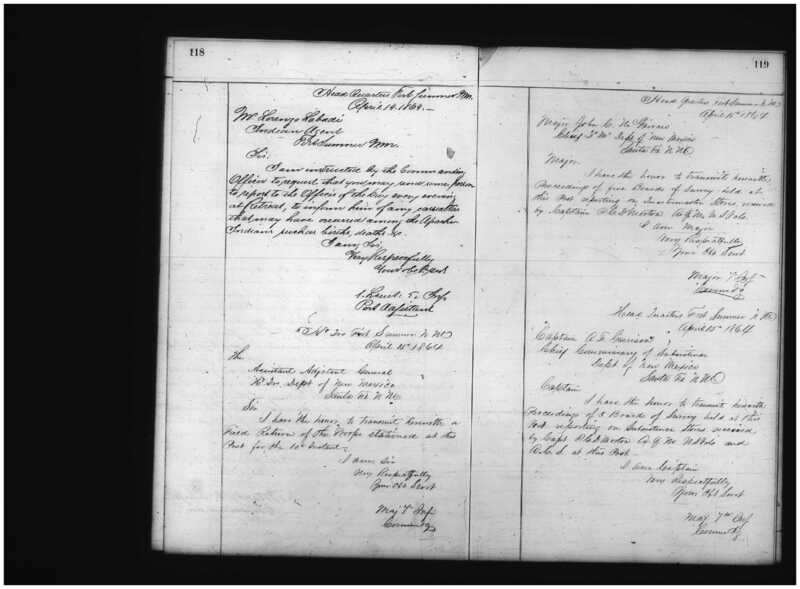 118
Head Quarters Fort Sumner N.M.
April 14. 1864.
Mr Lorenzo Labadi
Indian Agent
Fort Sumner N.M.
Sir.
I am instructed by the Commanding
Officer to request that you may send some person
to report to the Officer of the Day every evening
at Retreat, to inform him of any casualties
that may have occurred among the Apache
Indians such as births, deaths &c.
I am Sir,
Very Respectfully
Your Obt Servt
1 Lieut: 5" Inf.
Post Adjutant
Hd Qrs Fort Sumner N M
April 15th 1864
The
Assistant Adjutant General
Hd Qrs Dept of New Mexico
Santa Fe N M
Sir
I have the honor to transmit herewith a
Field Return of the Troops stationed at this
Post for the 10th Instant.
I am Sir
Very Respectfully
Your Obt Servt
Maj 7" Inf
Commdg
119
Head Quarters Fort Sumner N. M.
April 15th 1864
Major John C. McFerran
Chief Q. M. Dept of New Mexico
Santa Fe N M
Major
I have the honor to transmit herewith
Proceedings of five Boards of Survey held at
this Post reporting on Quartermaster Stores, received
by Captain A.Q.M. U.S. Vols.
I am Major
Very Respectfully
Your Obt Servt
Major 7" Inf
Commdg
Head Quarters Fort Sumner N. M.
April 15th 1864
Captain A. F. Garrison
Chief Commissary of Subsistence
Dept of New Mexico
Santa Fe N M
Captain
I have the honor to transmit herewith
Proceedings of 5 Boards of Survey held at this
Post reporting on Subsistence Stores received
by Capt. A.Q.M. U.S. Vols and
A.C.S. at this Post.
I am Captain
Very Respectfully
Your Obt Servt
Maj 7th Inf
Commdg